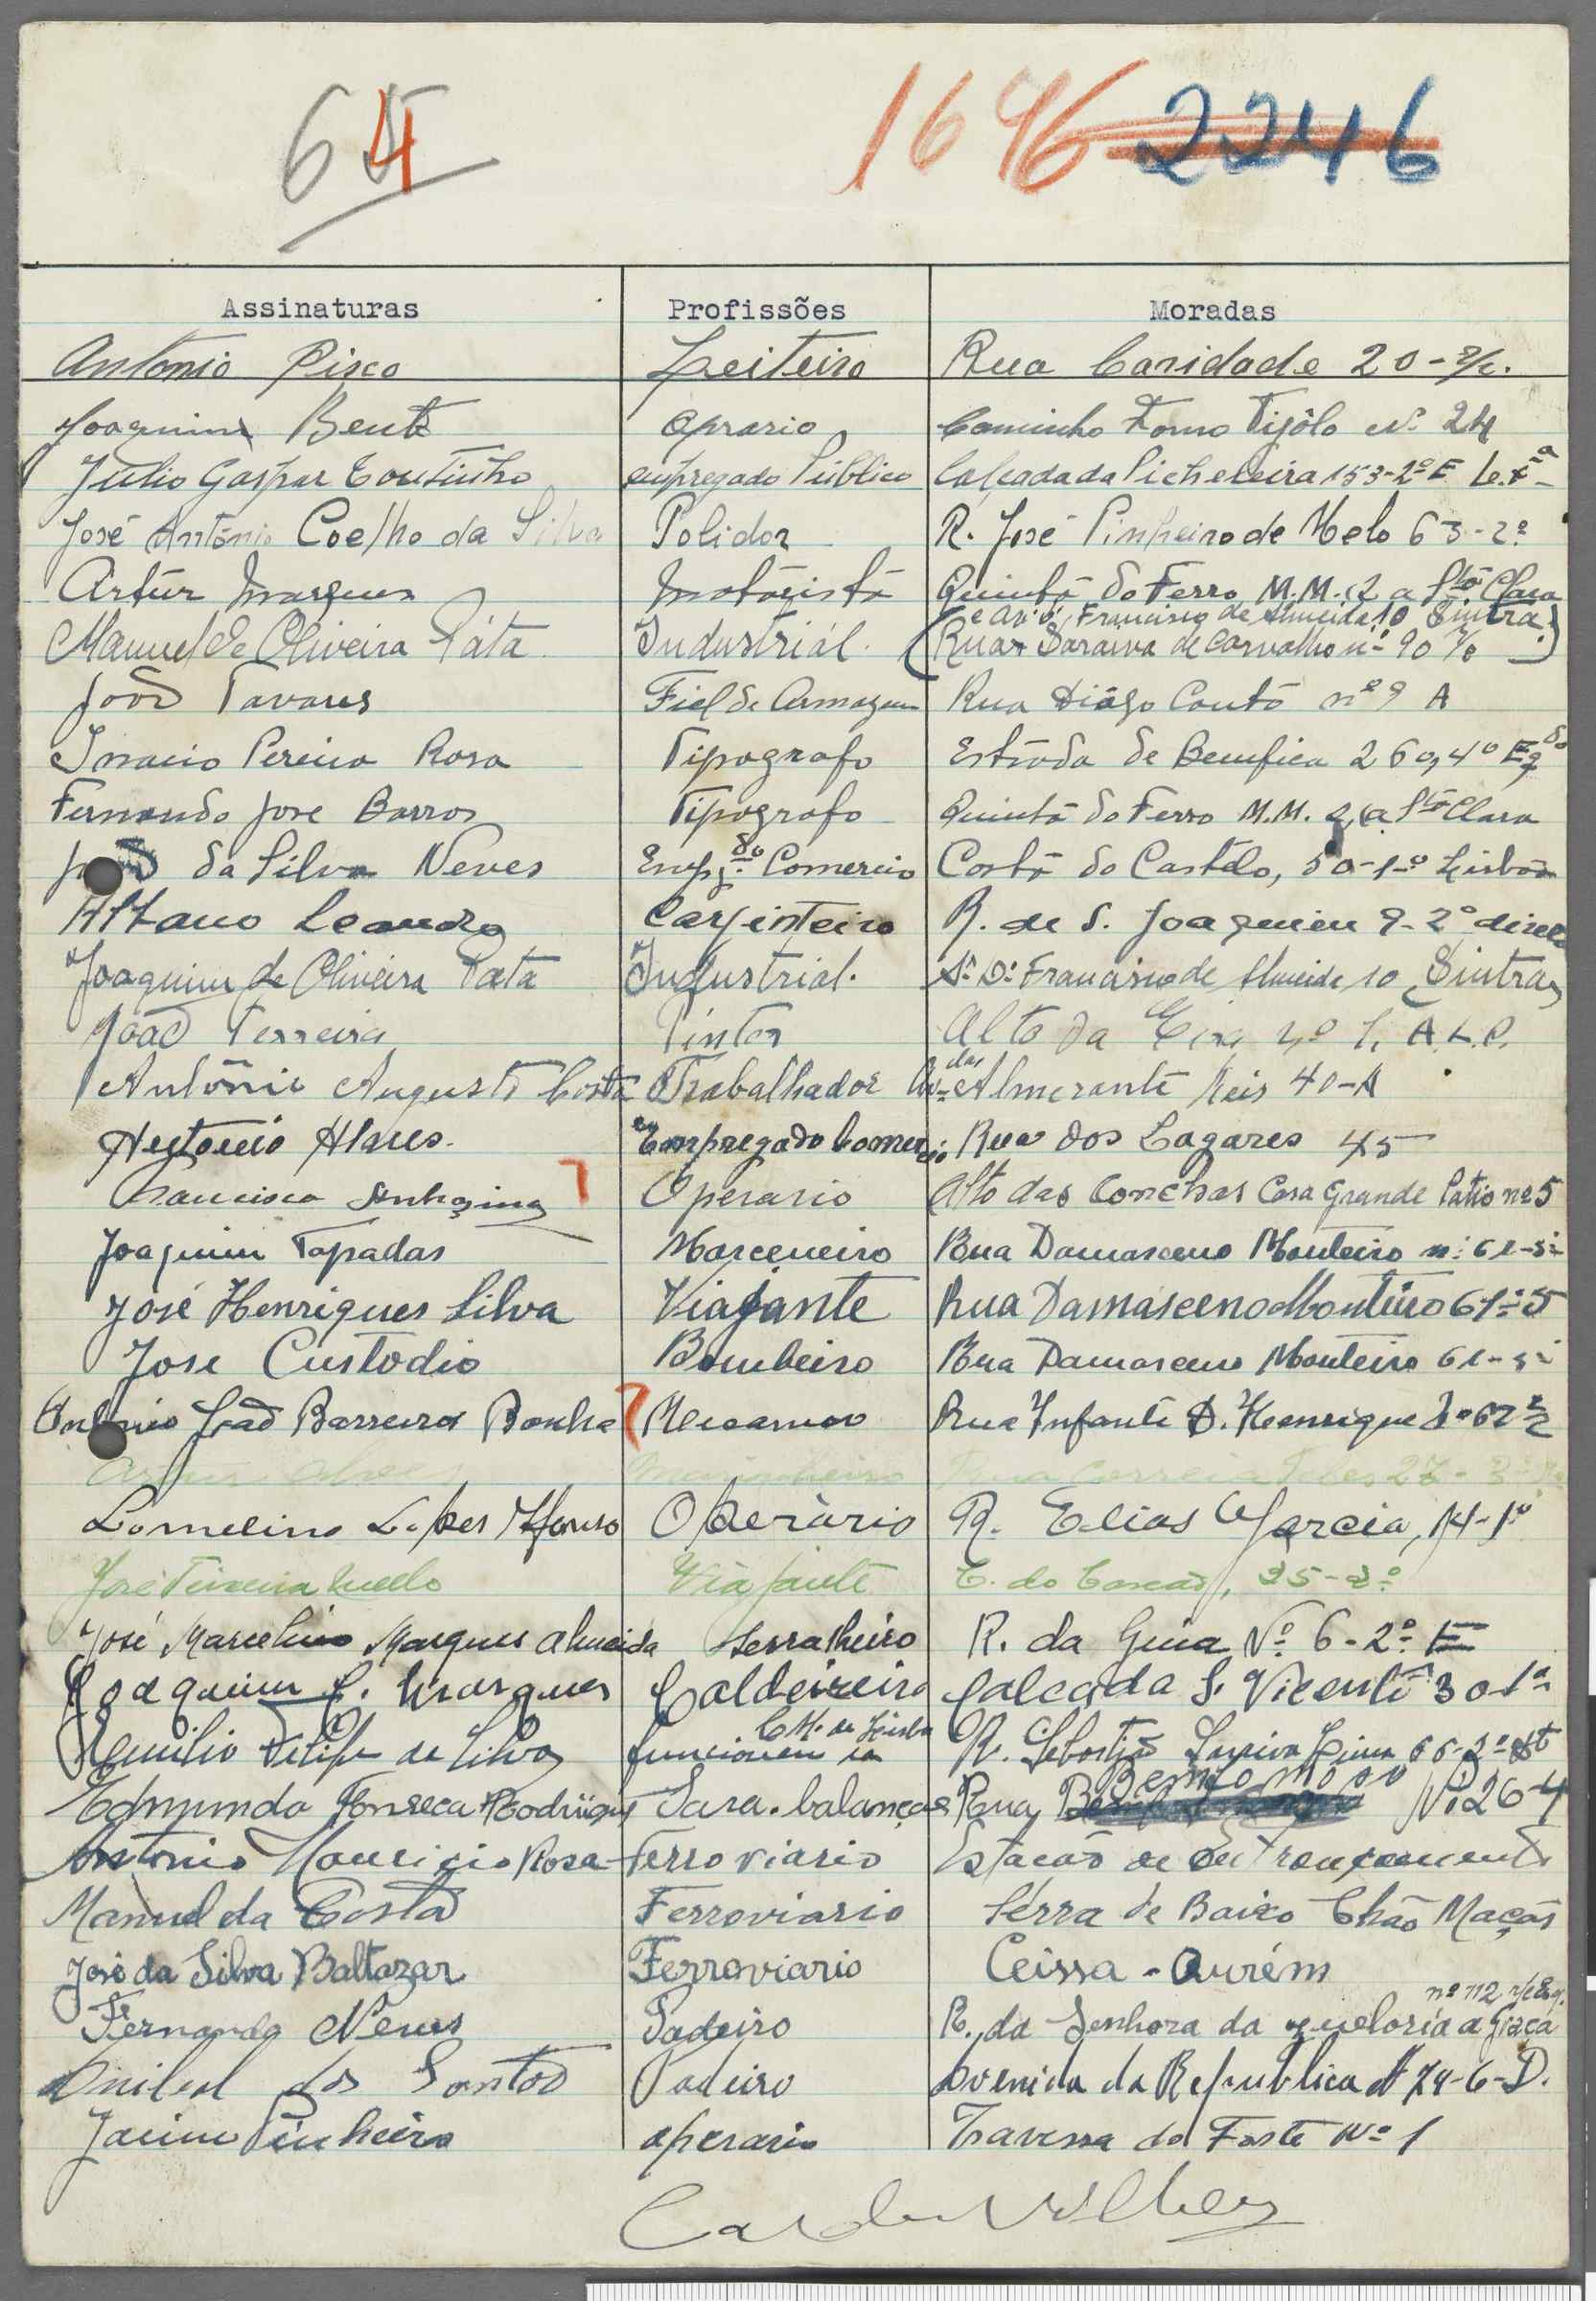 64
1646 2246
Assinaturas Profissões Moradas
Antonio Pisco Leiteiro Rua Caridade 20-r/c.
Joaquim Bento Oprario Caminho Forno Tijôlo Nº 24
Julio Gaspar Coutinho empregado Público Calçada da Picheleira 153-2º E Lx.ª
José António Coelho da Silva Polidor R. José Pinheiro de Melo 63-2º
Artur Marques Motorista Quinta do Ferro M.M. 2 a Stª Clara
e Av. D. Francisco de Almeida 10 Sintra
Manuel de Oliveira Páta Industrial. (Rua Saraiva de Carvalho nº 90
João Tavares Fiel de Armazem Rua Diôgo Couto nº 9 A
Inacio Pereira Rosa Tipografo Estrada de Bemfica 260, 4º Eqdo
Fernando José Barros Tipografo Quinta do Ferro M.M. 2, a Stª Clara
João da Silva Neves Empgdo Comercio Costa do Castelo, 50-1º Lisboa
Leandro Carpinteiro R. de S. Joaquim 9-2º
Joaquim de Oliveira Páta Industrial. Francisco de Almeida 10 Sintra
João Ferreira Pintor Alto da Eira nº 1,
António Augusto Costa Trabalhador Av. Almerante Reis 40-A
Antonio Alves. Empregado Comercio Rua dos Lagares 45
Francisco Operario Alto das Conchas Casa Grande Patio nº 5
Joaquim Tapadas Marceneiro Rua Damasceno Monteiro nº 61-
José Henriques Silva Viajante Rua Damasceno Monteiro 61-5
Jose Custodio Bombeiro Rua Damasceno Monteiro 61-
António João Barreira Mecanico Rua Infante D. Henrique
Artur Alves Marinheiro Rua Correia Teles 27-3º
Lomelino Lopes Afonso Operário R. Elias Garcia, 14-1º
José Teixeira Viajante
José Marcelino Marques Almeida Serralheiro R. da Guia Nº 6-2º E
Joaquim Marques Caldeireiro Calçada S. Vicente 30-1º
C.M. de Lisboa
Emilio Felipe da Silva R. Sebastião Saraiva Lima
Edmundo Fonseca Rodrigues balanças Rua Nº 26-4
Antonio Mauricio Rosa Ferroviario Estacão de Entroncamento
Manuel da Costa Ferroviario Serra de Baixo Chão Maçãs
José da Silva Baltazar Ferroviario Ceissa - Ourém
nº 112 r/c Esq.
Fernando Neves Padeiro R. da Senhora da Gloria a Graça
Anibal dos Santos Padeiro Avenida da Republica Nº 74-6-D.
Jaime Pinheiro operario Travessa do Forte Nº 1